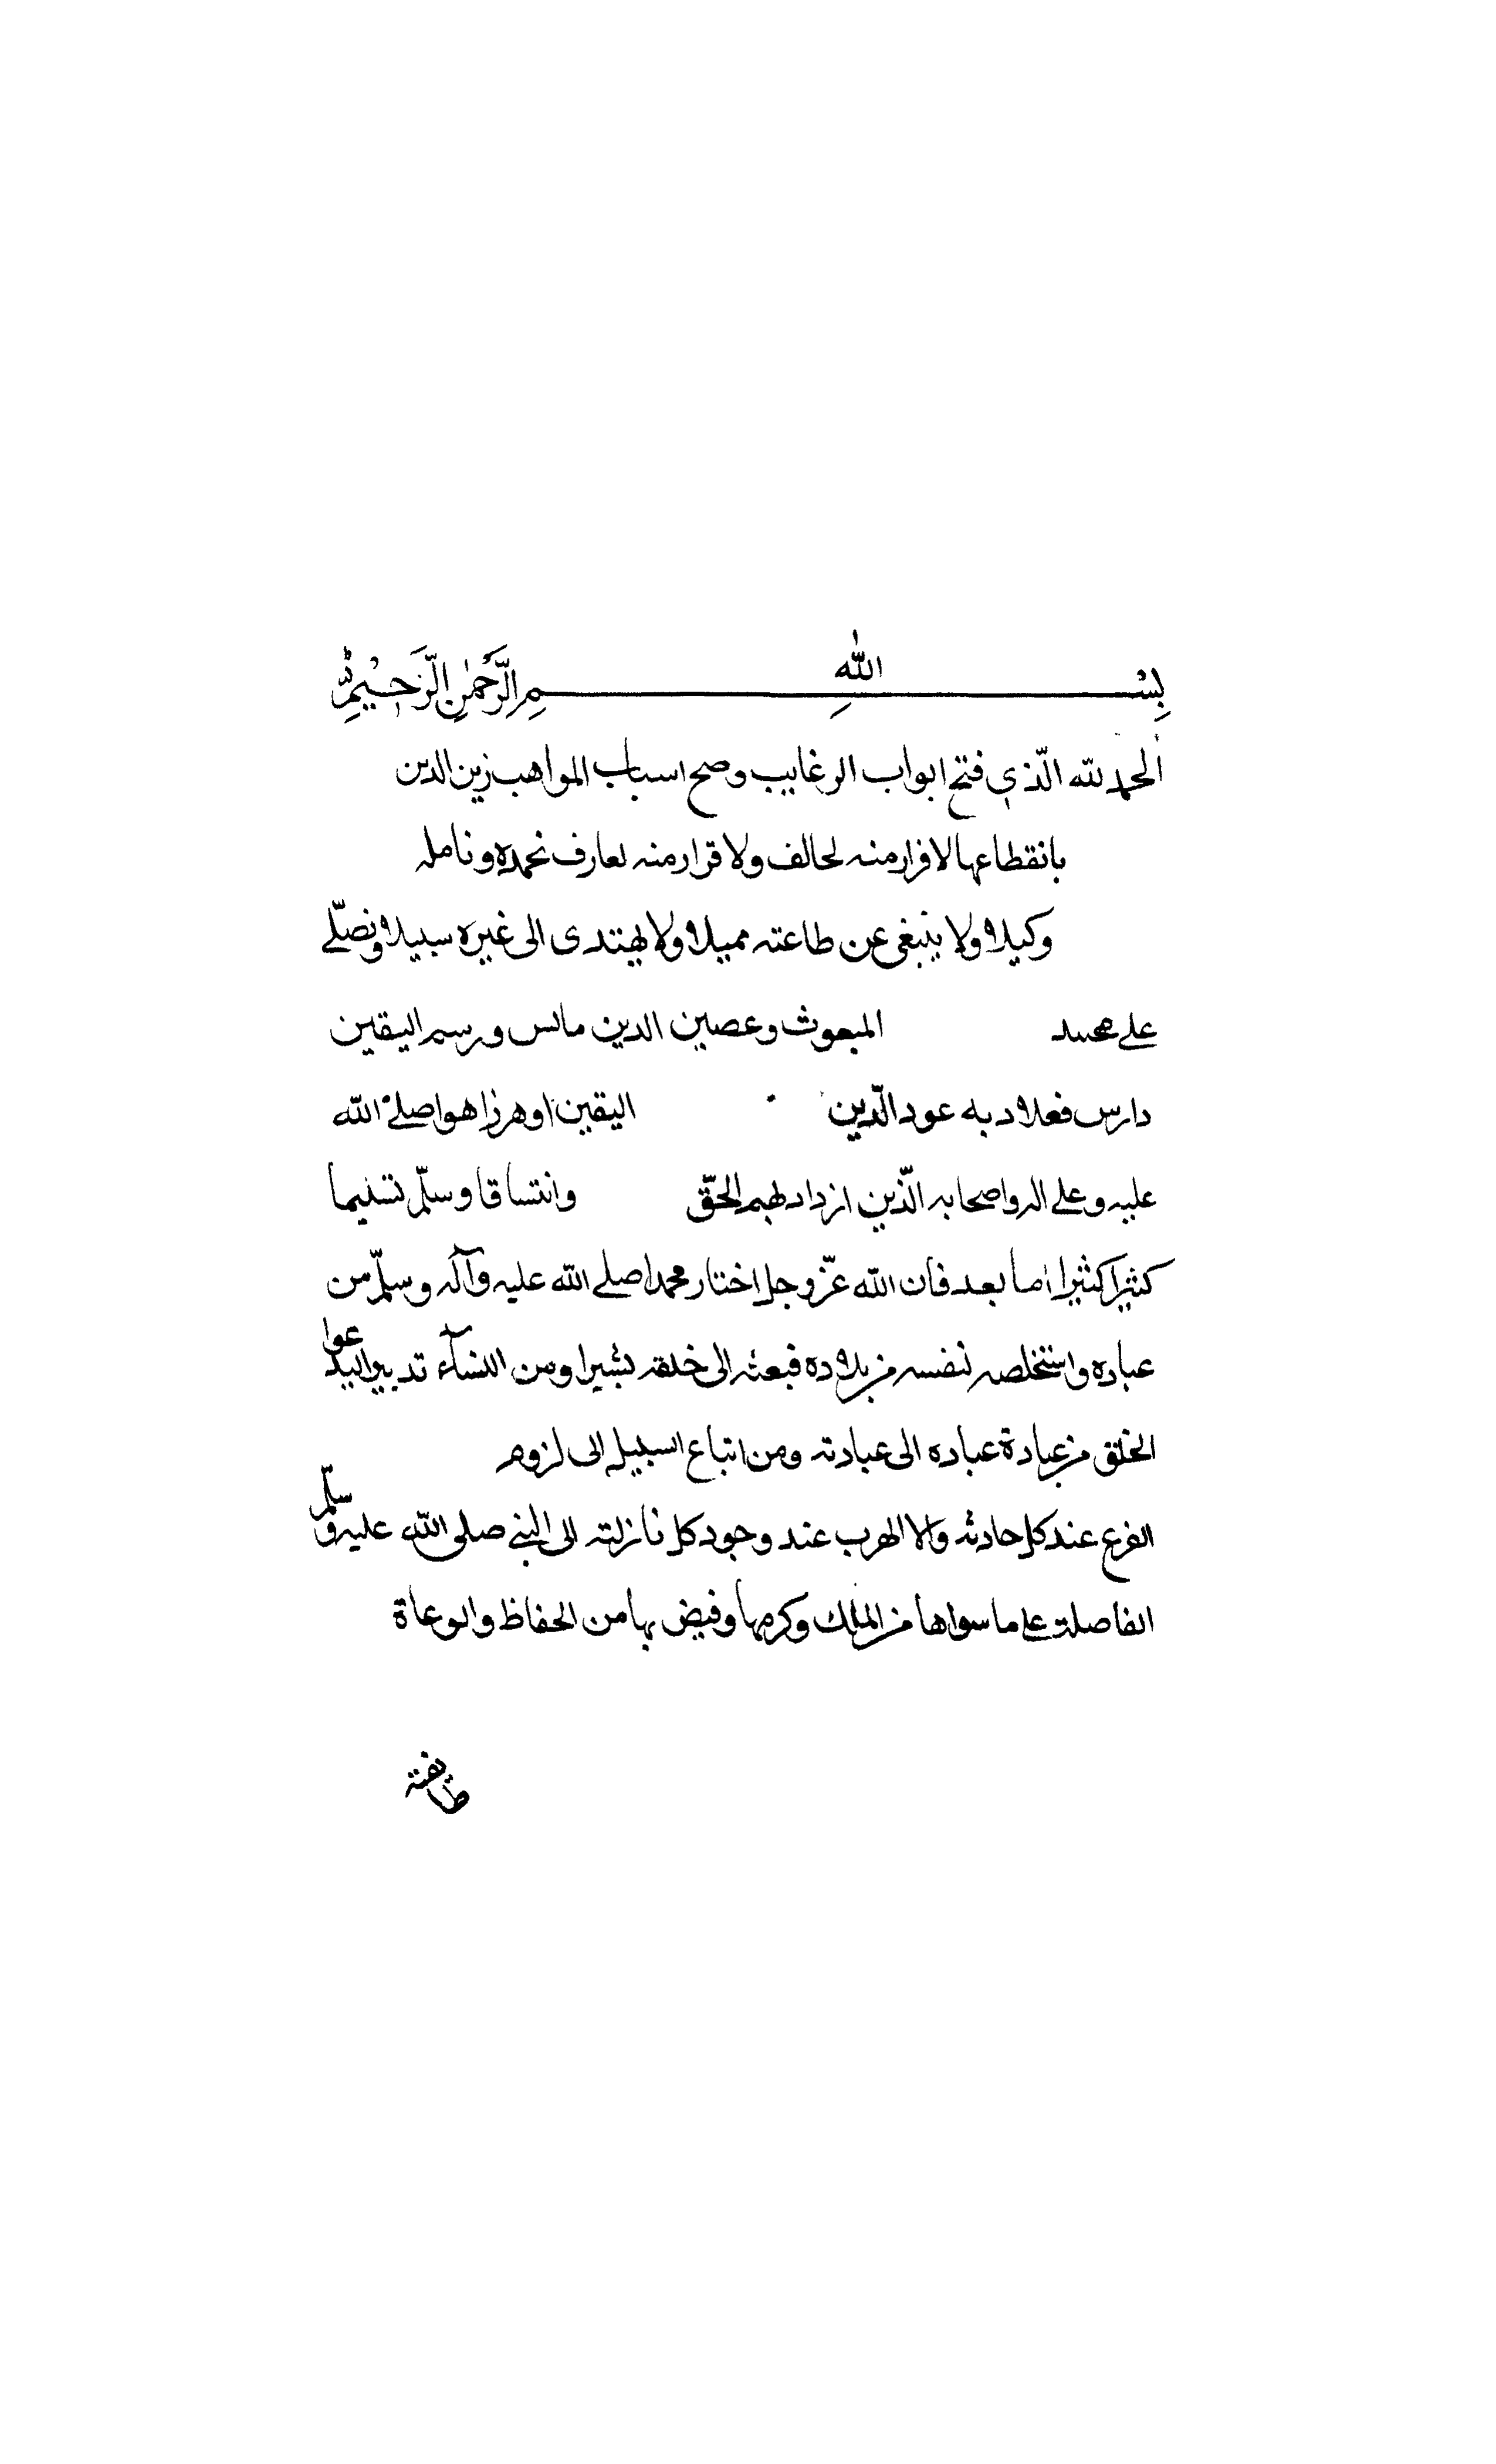 بِسْمِ اللهِ الرَّحْمٰنِ الرَّحِيْمِ
الحمد لله الّذي فتح ابواب الرغايب وصح اسباب المواهب زين الدين
بانقطاعها لا فرار منه لحالف ولا قرار منه لعارف نحمده ونامله
وكيلا ولا ينبغى عن طاعته مميلا ولا يهتدى الى غيره سبيلا ونصلّے
علے محمد المبعوث وعصين الدين مانس ورسم اليقين
دارس فعلا دبه عود الدّين اليقين او هرزاهوا صلے الله
عليه وعلے اله واصحابه الّذين ازداد لهم الحقّ وانتساقا وسلّم تسليما
كثيرا كثيرا اما بعد فان الله عزّ وجل اختار محمدا صلے الله عليه وآله وسلّم من
عباده واستخلصه لنفسه من بلاده فبعثه الى خلقه بشيرا ومن النسآء تدبير اليدعوا
الخلق من عبادة عباده الى عبادته ومن اتباع السبيل الى لزوم
الفزع عند كل حادثه والا الهرب عند وجود كل نازلته الى النبے صلى الله عليه وسلّم
الفاصلة علے ما سواها من الملك وكرمها وفيض بها من الحفاظ والوعاة
طايفة